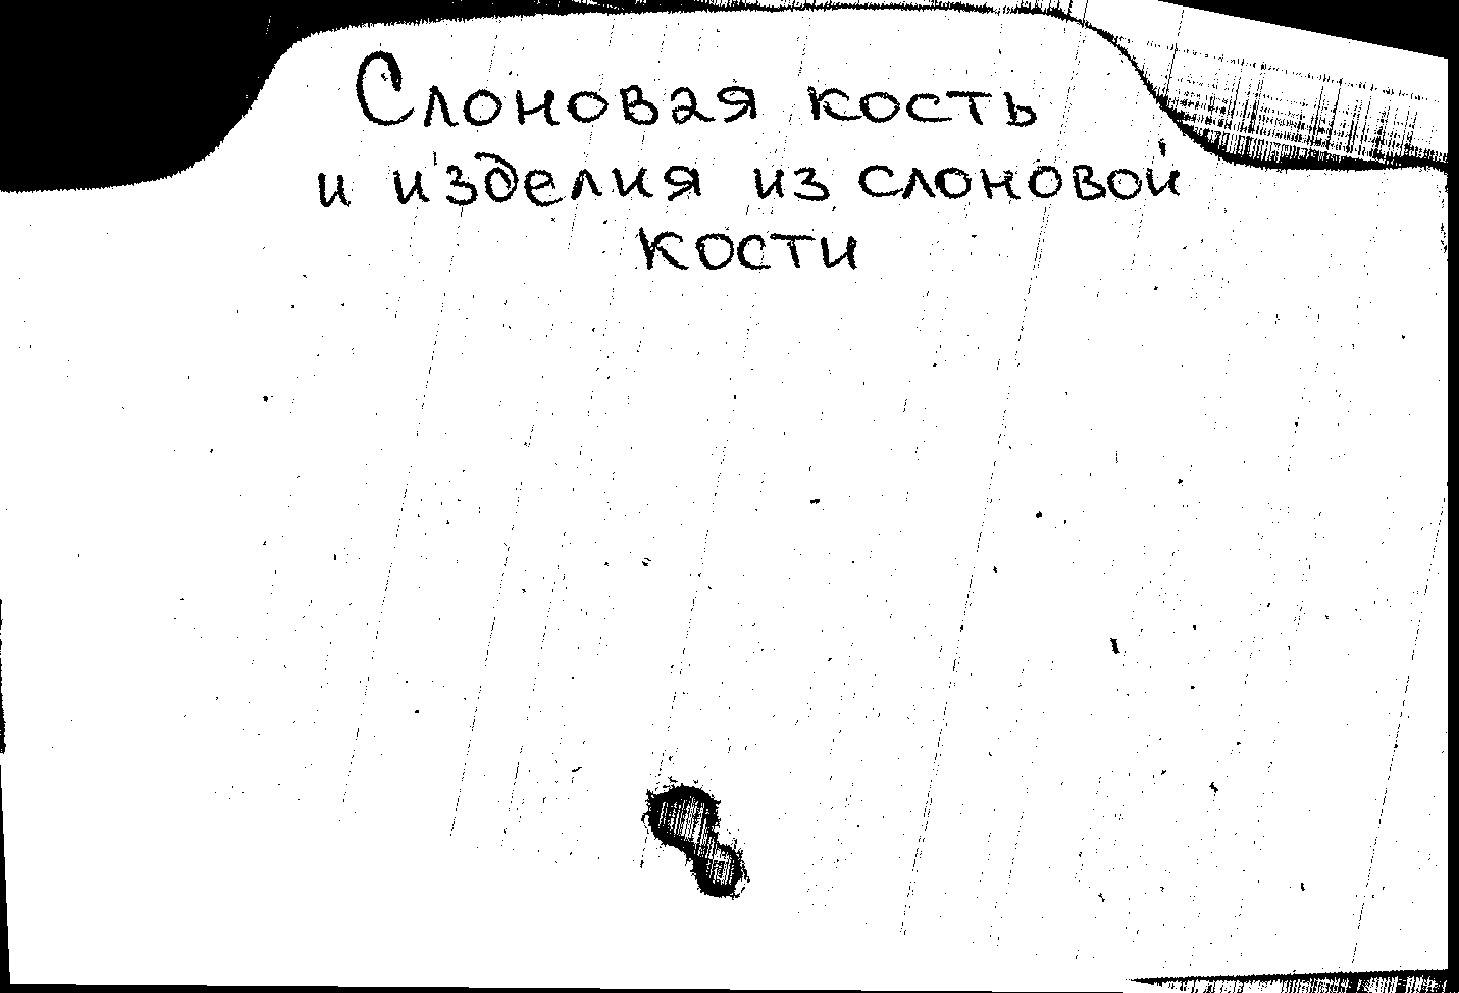 Слоновая кость
и изделия из слоновой
кости